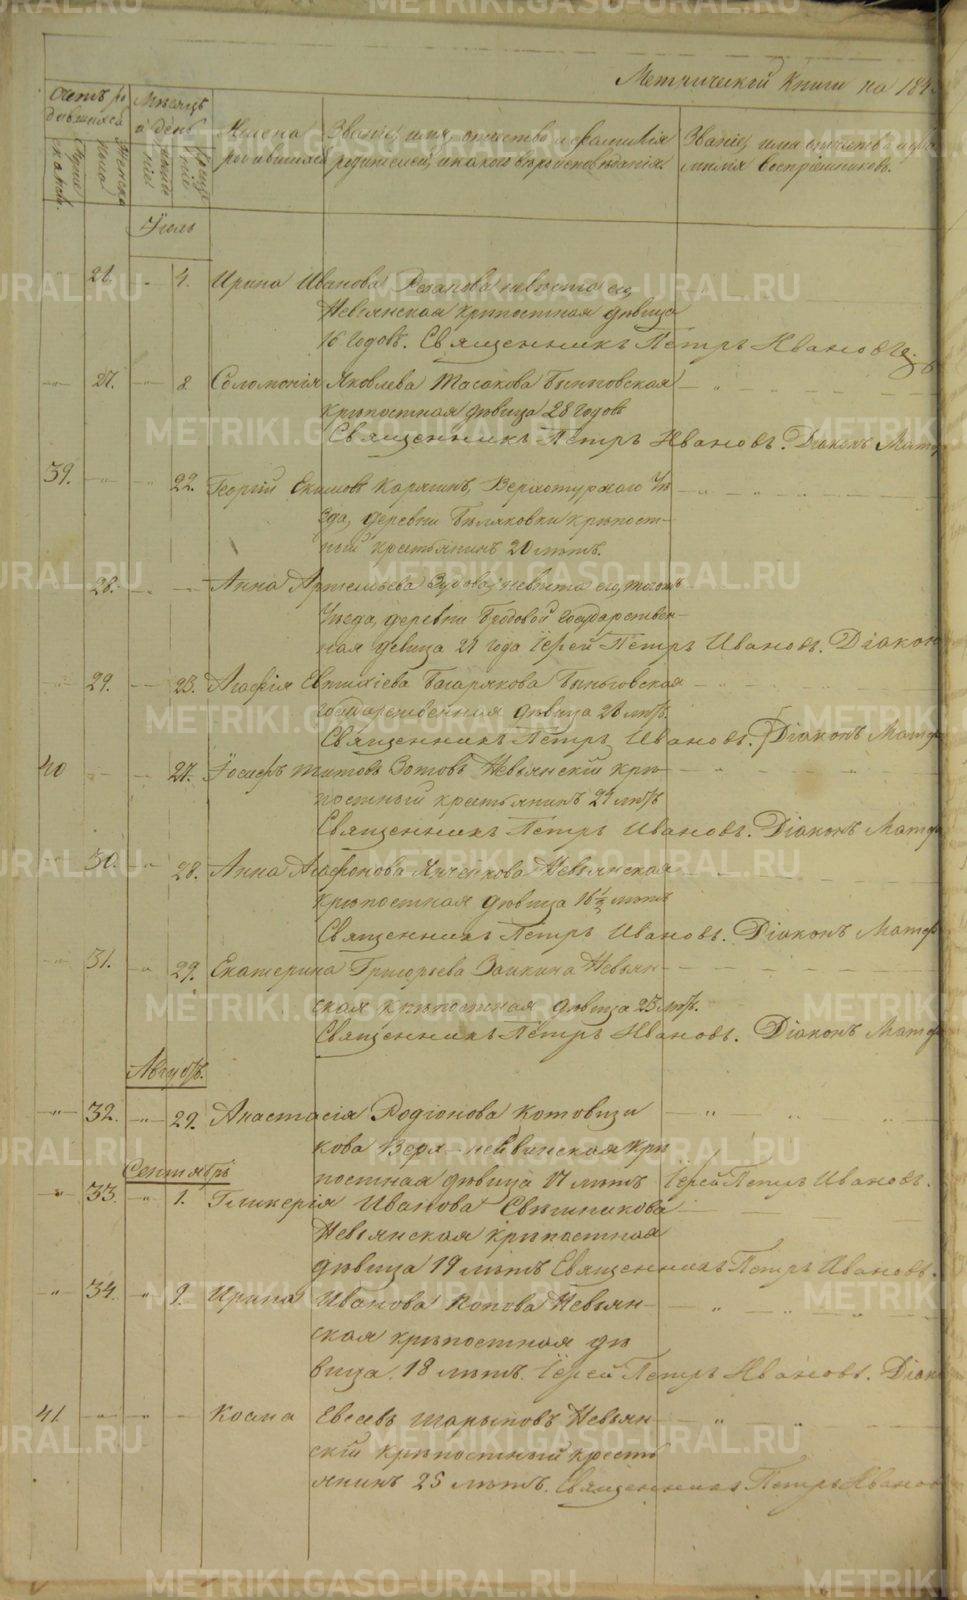 Метрической книги на 184
Счетъ родившихся
Мѣсяцъ и день
Имена родившихся
Званіе, имя, отчество и фамилія родителей, и какого вѣроисповѣданія.
Званіе, имя отчество и фамилія воспріемниковъ.
Іюль
21. 4. Ирина Иванова невѣста его
Невьянская крѣпостная дѣвица
16 годовъ. Священникъ Петръ Ивановъ
27. 8. Соломонія Яковлева Быньговская
крѣпостная дѣвица 28 годовъ
Священникъ Петръ Ивановъ. Діаконъ
39. 22. Георгій Екимовъ Карягинъ, Верхотурскаго Уѣ
зда, деревни Бѣляковки крѣпост-
ный крестьянинъ 20 лѣтъ.
28. Анна Артемьева невѣста его, тогожъ
Уѣзда, деревни Бродовой государствен-
ная дѣвица 21 года Іерей Петръ Ивановъ. Діаконъ
29. 23. Агафія Евтихіева Быньговская
государственная дѣвица 26 лѣтъ.
Священникъ Петръ Ивановъ. Діаконъ
40 27. Іосифъ Титовъ Зотовъ Невьянскій крѣ
постный крестьянинъ 24 лѣтъ
Священникъ Петръ Ивановъ. Діаконъ
30. 28. Анна Агафонова Невьянская
крѣпостная дѣвица 16½ лѣтъ
Священникъ Петръ Ивановъ. Діаконъ
31. 29. Екатерина Григорьева Заикина Невьян-
ская крѣпостная дѣвица 25 лѣтъ.
Священникъ Петръ Ивановъ. Діаконъ
Августъ.
32. 29. Анастасія Родіонова Котовизи
кова Верх-нейвинская крѣ
постная дѣвица 17 лѣтъ Іерей Петръ Ивановъ.
Сентябрь
33. 1. Гликерія Иванова Свѣшникова
Невьянская крѣпостная
дѣвица 19 лѣтъ Священникъ Петръ Ивановъ.
34. 9. Ирина Иванова Попова Невьян-
ская крѣпостная дѣ
вица 18 лѣтъ. Іерей Петръ Ивановъ. Діак
41. Косма Евсевъ Шарыповъ Невьян-
скій крѣпостный кресть
янинъ 25 лѣтъ. Священникъ Петръ Иванов
METRIKI.GASO-URAL.RU